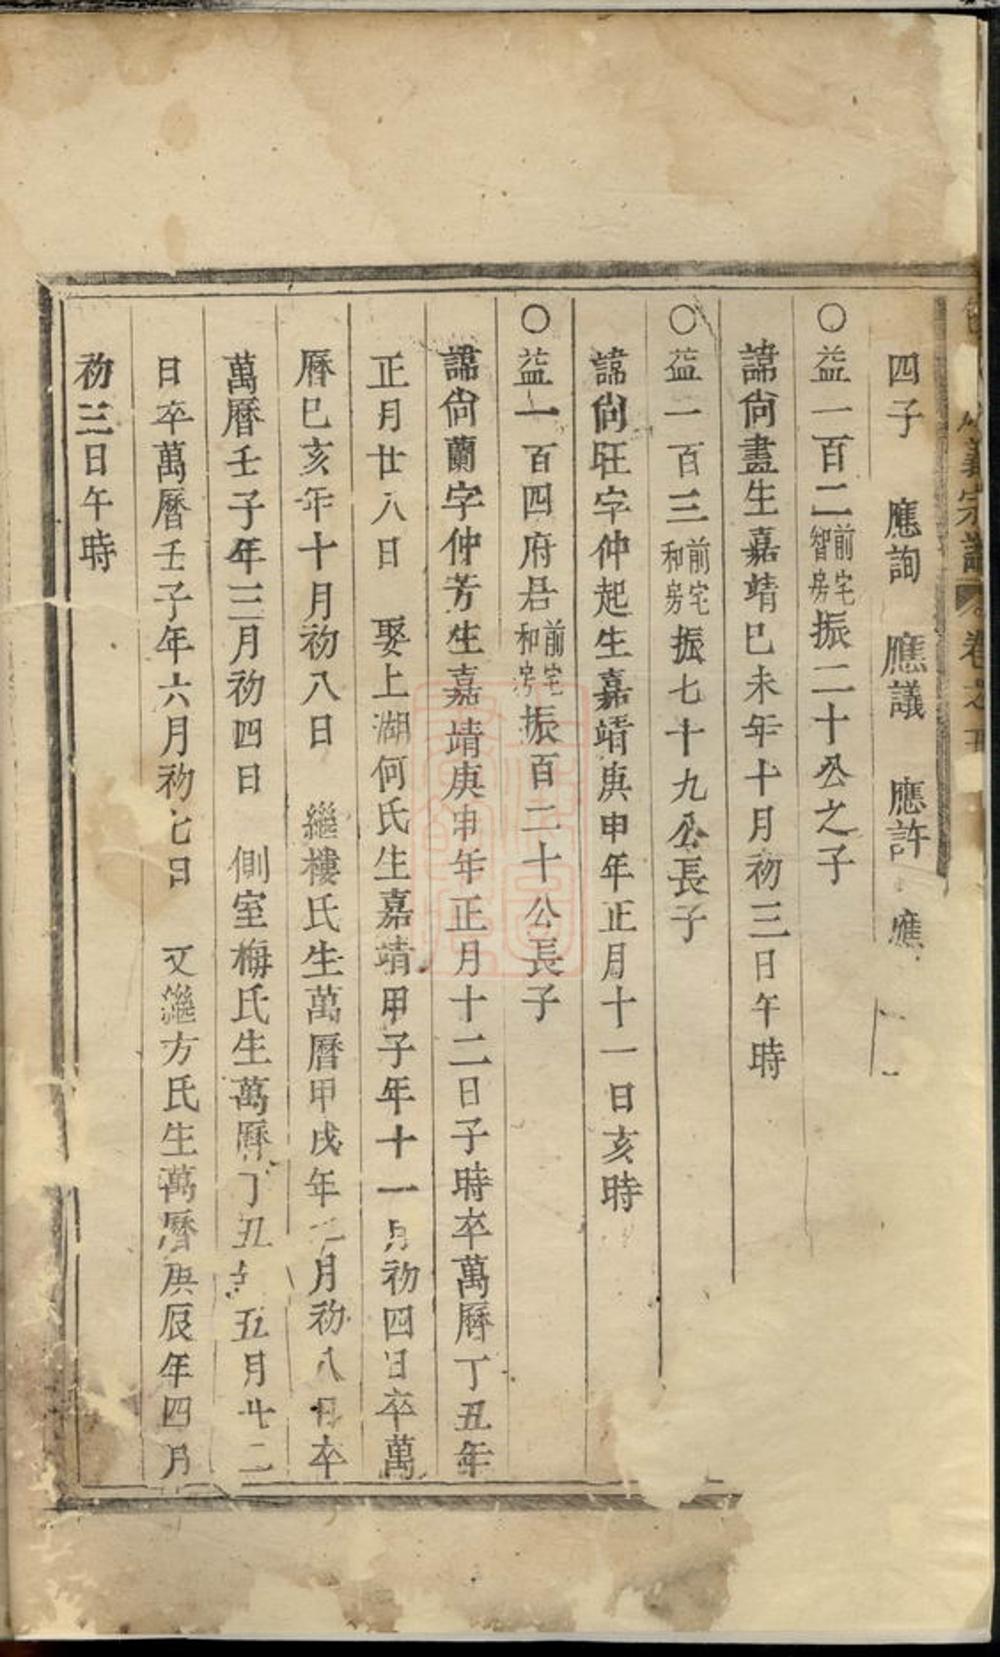 義宗譜 卷之五
四子 應詢 應議 應許 應
〇益一百二前宅智房振二十公之子
諱尙盡生嘉靖已未年十月初三日午時
〇益一百三前宅和房振七十九公長子
諱尙旺字仲起生嘉靖庚申年正月十一日亥時
〇益一百四府君前宅和房振百二十公長子
諱尙蘭字仲芳生嘉靖庚申年正月十二日子時卒萬曆丁丑年
正月廿八日 娶上湖何氏生嘉靖甲子年十一月初四日卒萬
曆已亥年十月初八日 繼樓氏生萬曆甲戌年 月初八日卒
萬曆壬子年三月初四日 側室梅氏生萬曆丁丑年五月廿二
日卒萬曆壬子年六月初七日 又繼方氏生萬曆庚辰年四月
初三日午時